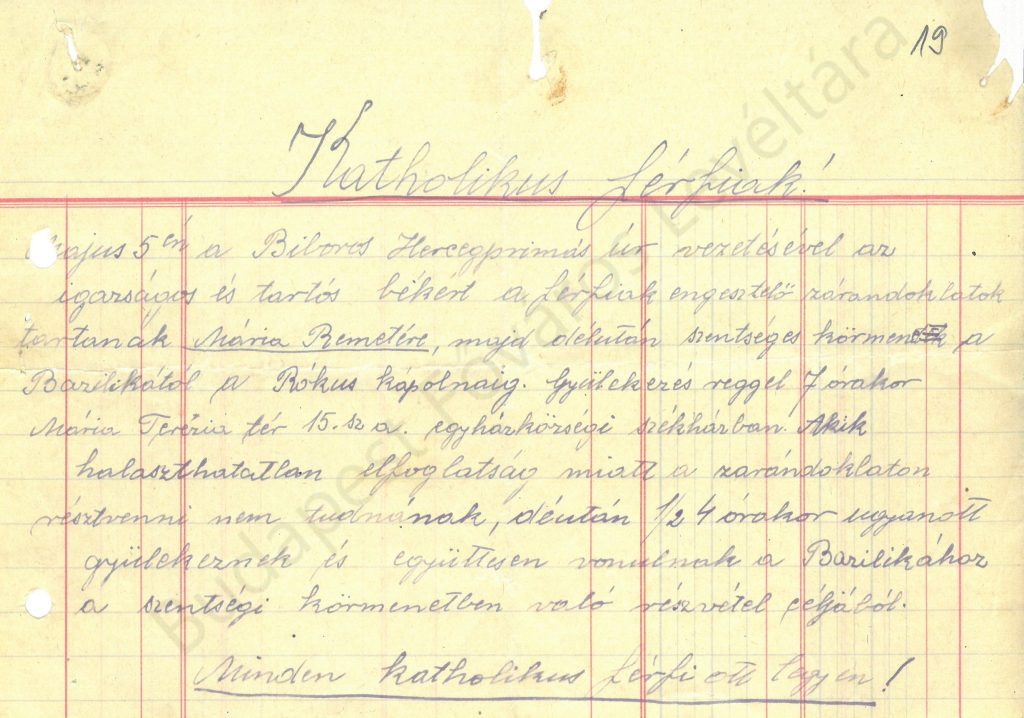 19
Katholikus férfiak!
Május 5 én a Biboros Hercegprimás úr vezetésével az
igazságos és tartós békért a férfiak engesztelő zárándoklatok
tartanak Mária Remetére, majd délután szentséges körmen a
Bazilikától a Rókus kápolnáig. Gyülekezés reggel 7 órakor
Mária Terézia tér 15. sz a. egyházközségi székházban. Akik
halaszthatatlan elfoglatság miatt a zarándoklaton
résztvenni nem tudnának, déután 1/2 4 órakor ugyanott
gyülekeznek és együttesen vonulnak a Bazilikához
a szentségi körmenetben való részvétel céljából.
Minden katholikus férfi ott legyen!
Budapest Főváros Levéltára